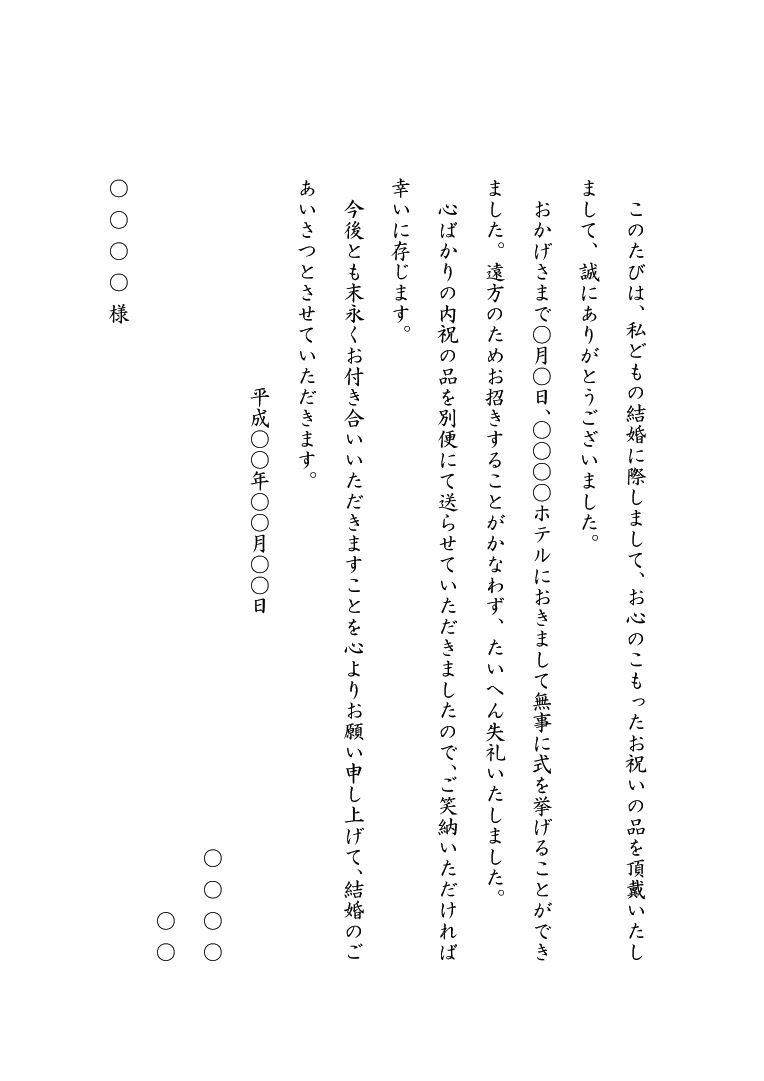 このたびは、私どもの結婚に際しまして、お心のこもったお祝いの品を頂戴いたし
まして、誠にありがとうございました。
おかげさまで〇月〇日、〇〇〇〇ホテルにおきまして無事に式を挙げることができ
ました。遠方のためお招きすることがかなわず、たいへん失礼いたしました。
心ばかりの内祝の品を別便にて送らせていただきましたので、ご笑納いただければ
幸いに存じます。
今後とも末永くお付き合いいただきますことを心よりお願い申し上げて、結婚のご
あいさつとさせていただきます。
平成〇〇年〇〇月〇〇日
〇〇〇〇
〇〇
〇〇〇〇様